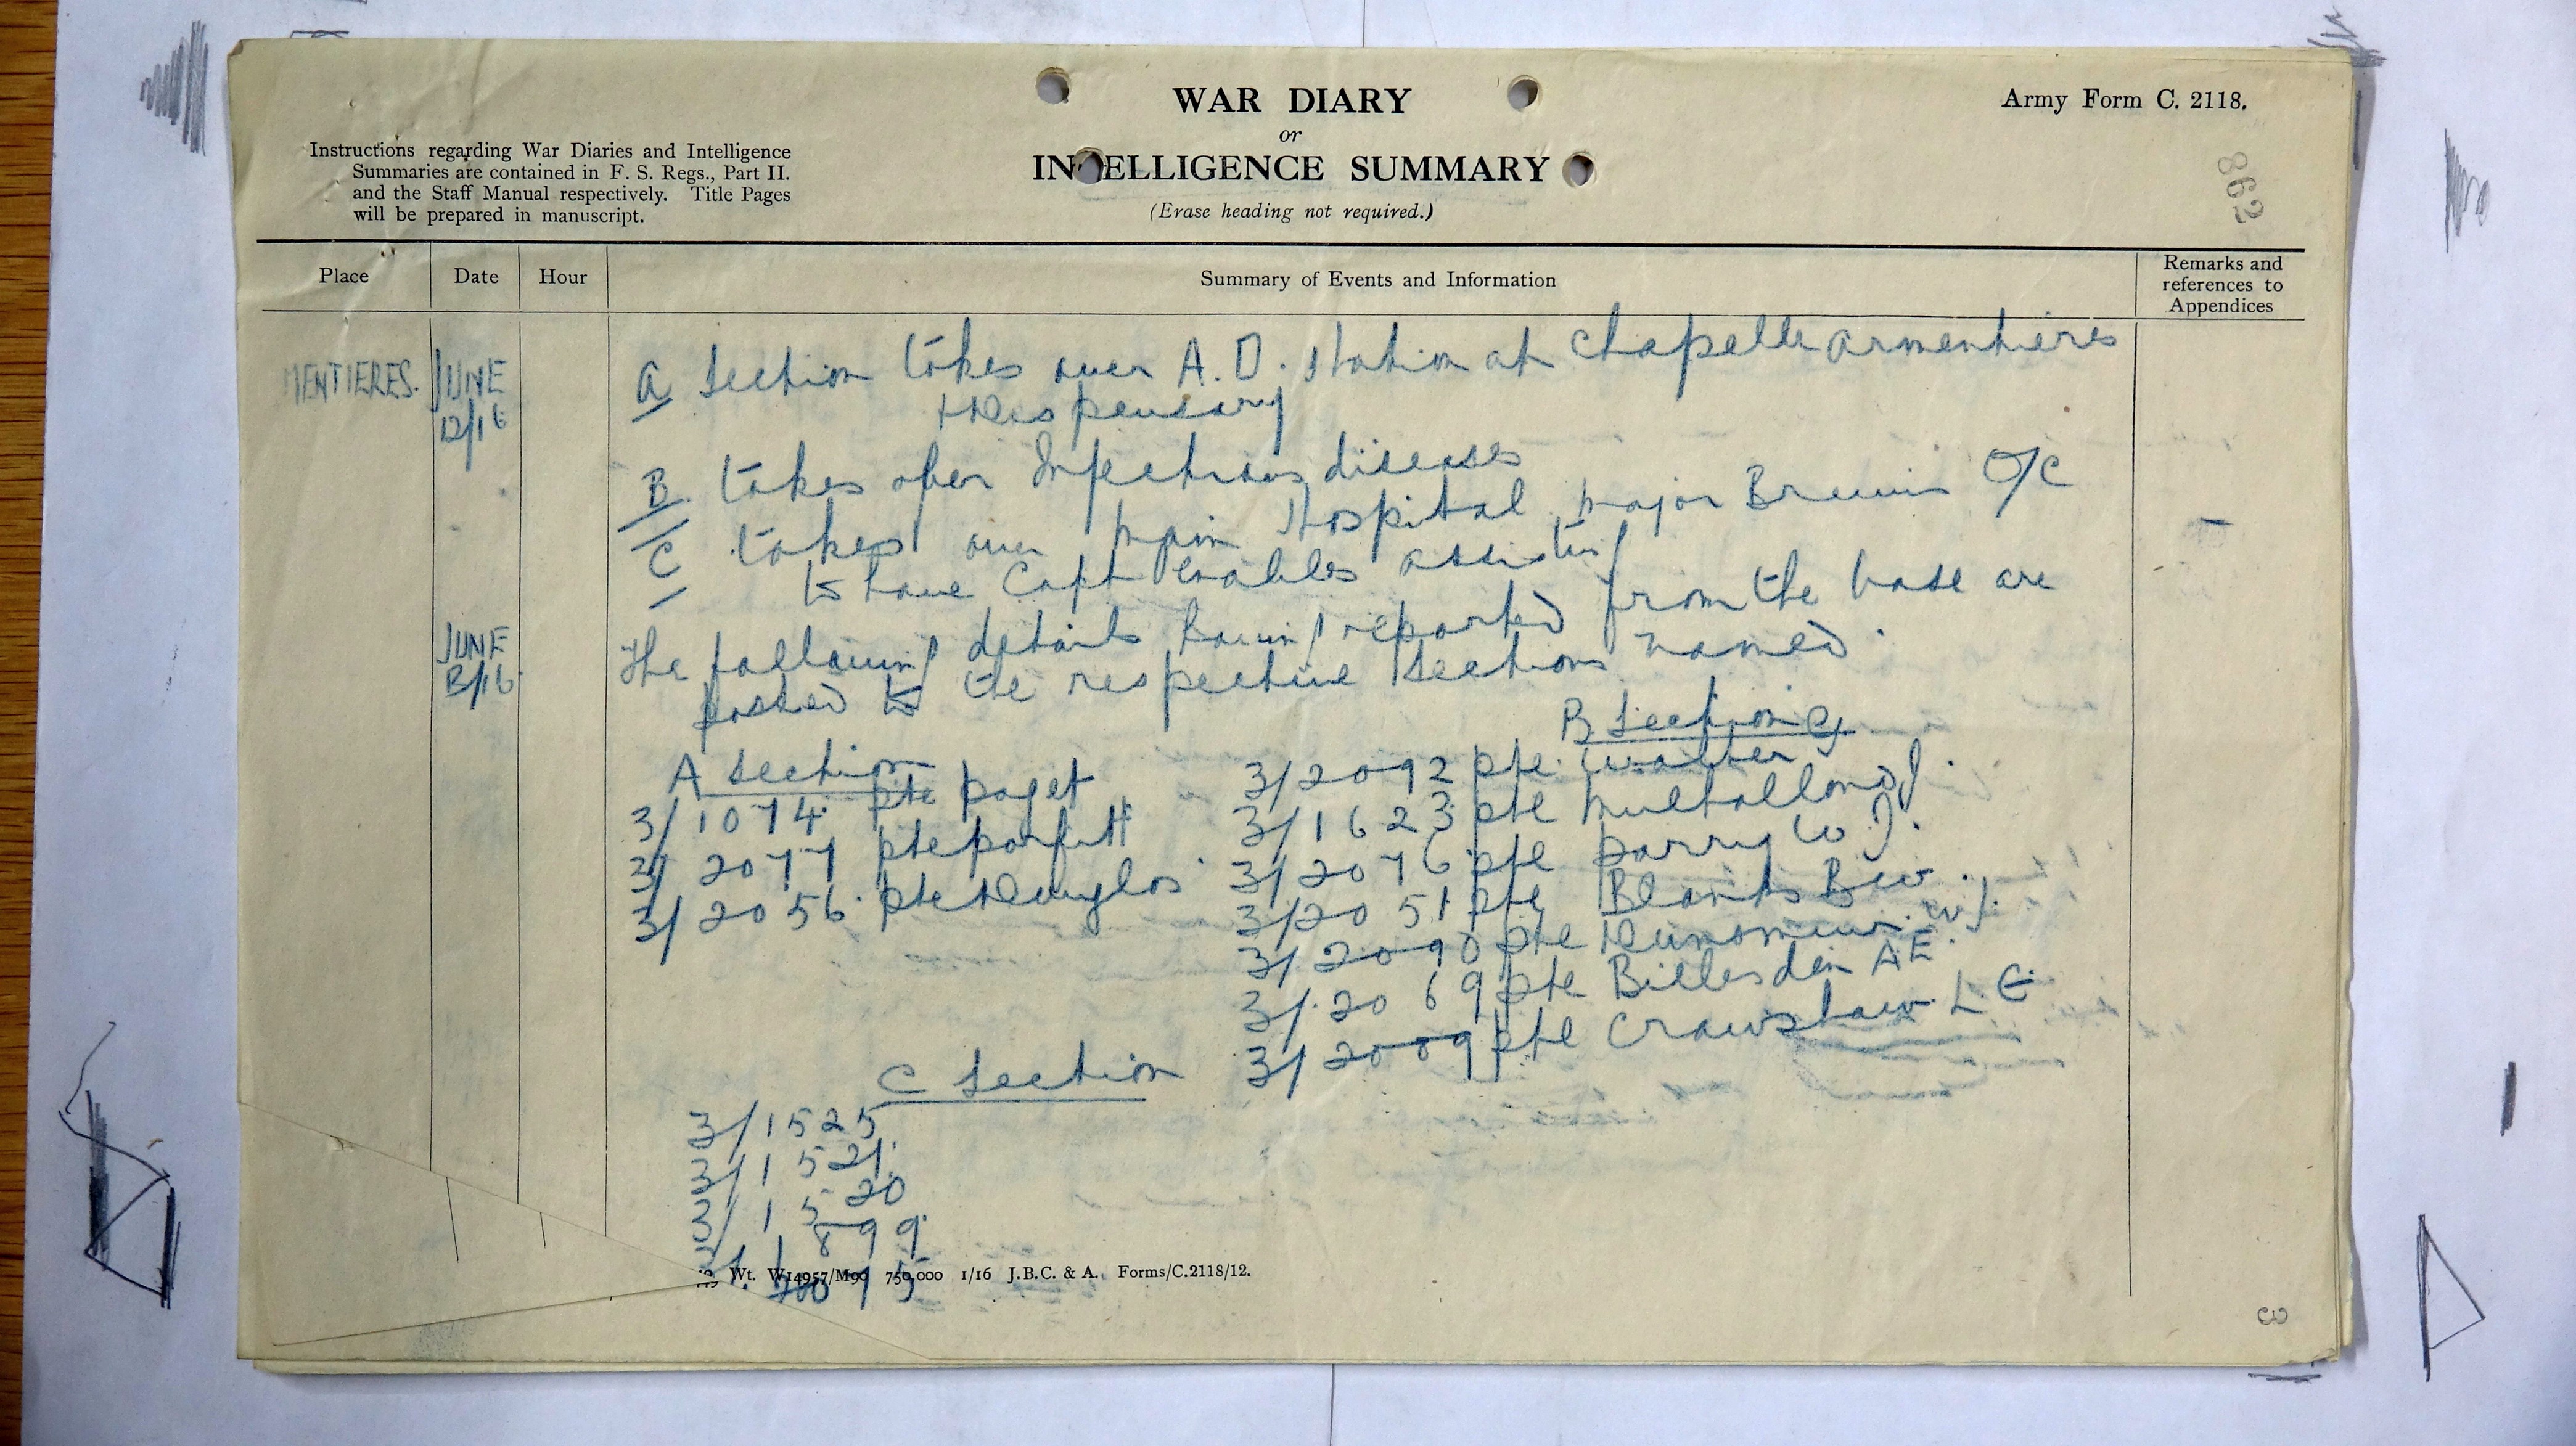 WAR DIARY
or
INTELLIGENCE SUMMARY
(Erase heading not required.)
Army Form C. 2118.
Instructions regarding War Diaries and Intelligence
Summaries are contained in F. S. Regs., Part II.
and the Staff Manual respectively. Title Pages
will be prepared in manuscript.
862
Place Date Hour Summary of Events and Information Remarks and references to Appendices
MENTIERES. JUNE 12/16 A Section takes over A.D. Station at Chapelle Armentieres
+ Dispensary
B takes over Infectious diseases
C takes over main Hospital major O/C
to have Capt assisting
JUNE 13/16 The following details having reported from the base are
posted to the respective Sections named.
A Section
3/1074 pte paget
3/2077 pte porfitt
3/2056 pte Douglas
B Section
3/2092 pte Walter G
3/1623 pte J.
3/2076 pte parry W J.
3/2051 pte Blanks B W.
3/2090 pte W J.
3/2069 pte Billesden A E.
3/2009 pte Crawshaw L E
C Section
3/1525
3/1521
3/1520
3/1899
Wt. W14957/M90 750,000 1/16 J.B.C. & A. Forms/C.2118/12.
3